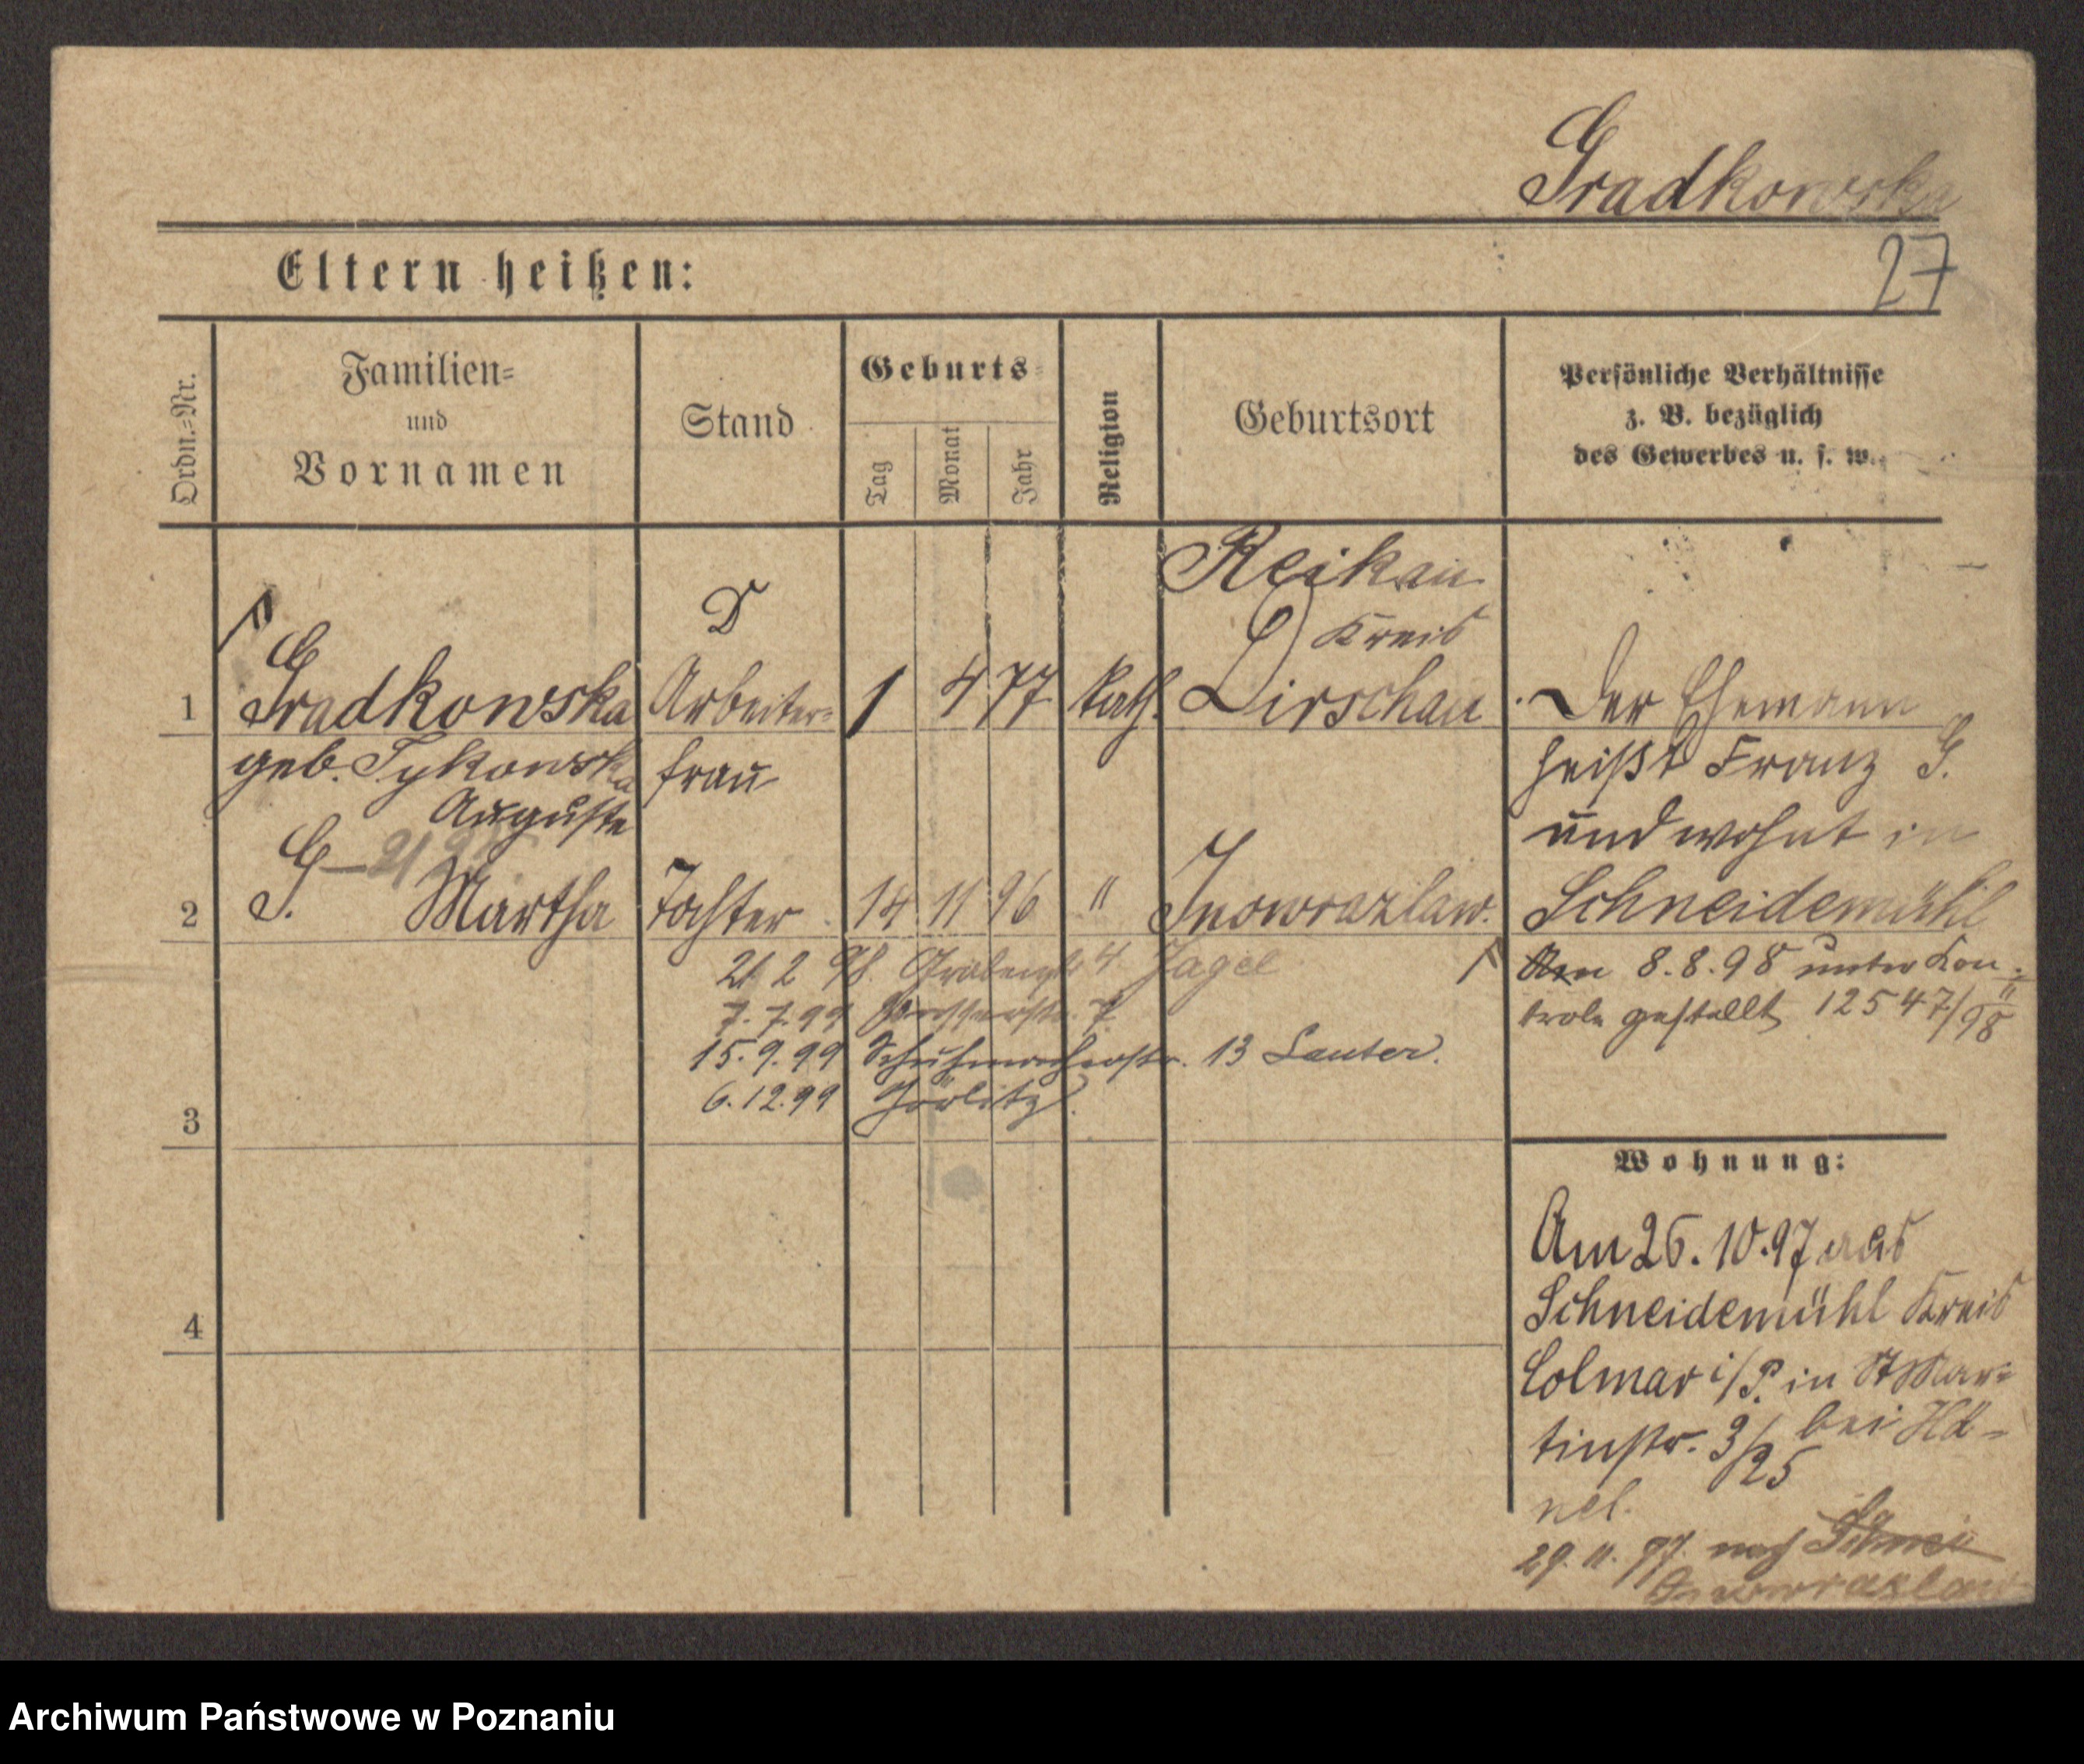 Gradkowska
27
Eltern heißen:
Ordn.=Nr.
Familien=
und
Vornamen
Stand
Geburts=
Tag
Monat
Jahr
Religion
Geburtsort
Persönliche Verhältnisse
z. B. bezüglich
des Gewerbes u. s. w.
Reikau
D Kreis
1 Gradkowska Arbeiter= 1 4 77 kath. Dirschau
geb. Tykowska frau
Auguste
Der Ehemann
heißt Franz G.
und wohnt in
Schneidemühl
2 G. — Martha Tochter 14 11 96 " Inowrazlaw.
21 2 98. 4 Jagel
7.7.99 7
15.9.99 Schuhmacherstr. 13 Lauter.
6.12.99 Görlitz.
Am 8.8.98 unter Kon=
trole gestellt 12547/98
3
4
Wohnung:
Am 26.10.97 aus
Schneidemühl Kreis
Colmar i/P. in St Mar=
tinstr. 3/25 bei Hä=
nel.
29.11.97 nach
Inowrazlaw
Archiwum Państwowe w Poznaniu